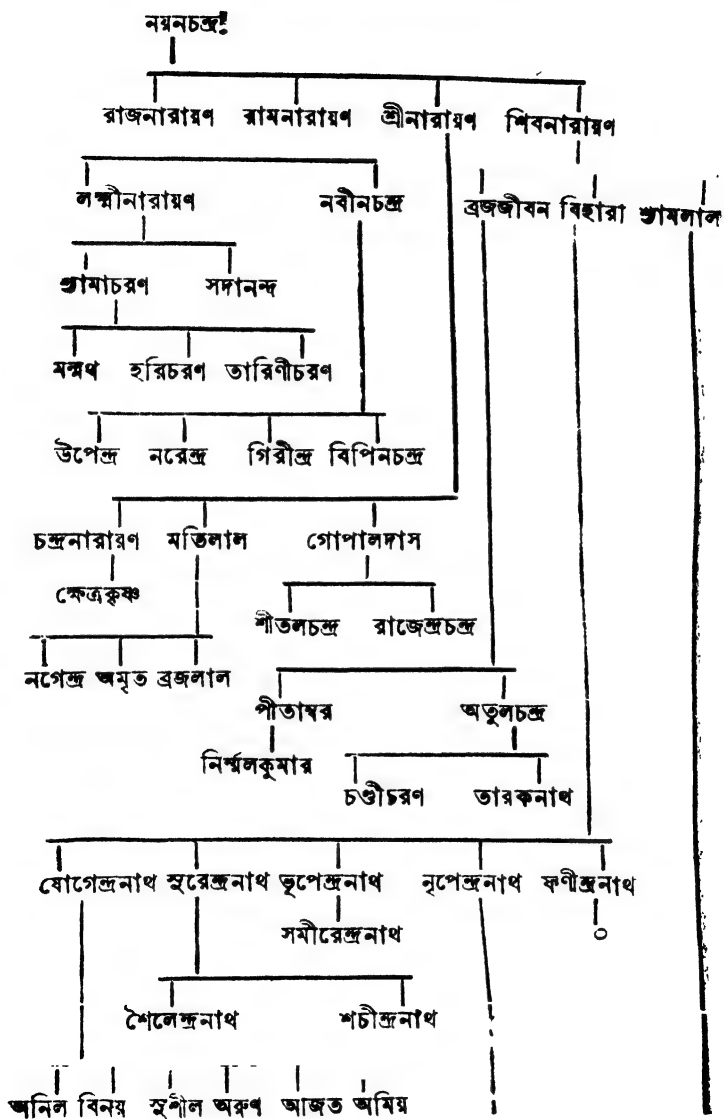 নয়নচন্দ্র
রাজনারায়ণ রামনারায়ণ শ্রীনারায়ণ শিবনারায়ণ
লক্ষ্মীনারায়ণ নবীনচন্দ্র ব্রজজীবন বিহারী শ্যামলাল
শ্যামাচরণ সদানন্দ
মন্মথ হরিচরণ তারিণীচরণ
উপেন্দ্র নরেন্দ্র গিরীন্দ্র বিপিনচন্দ্র
চন্দ্রনারায়ণ মতিলাল গোপালদাস
ক্ষেত্রকৃষ্ণ
শীতলচন্দ্র রাজেন্দ্রচন্দ্র
নগেন্দ্র অমৃত ব্রজলাল
পীতাম্বর অতুলচন্দ্র
নির্ম্মলকুমার
চণ্ডীচরণ তারকনাথ
যোগেন্দ্রনাথ সুরেন্দ্রনাথ ভূপেন্দ্রনাথ নৃপেন্দ্রনাথ ফণীন্দ্রনাথ
সমীরেন্দ্রনাথ ০
শৈলেন্দ্রনাথ শচীন্দ্রনাথ
অনিল বিনয় সুশীল অরুণ অজিত অমিয়